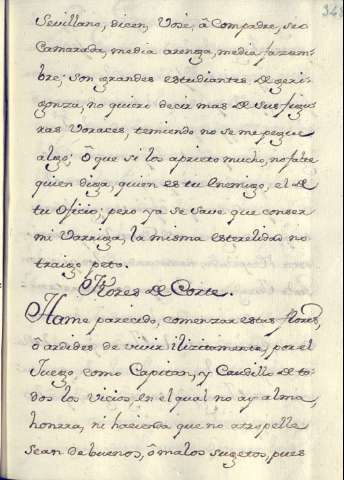 348
Sevillano, dicen, Vosè, ô Compadre, seo
Camarada, media arenga, media fazum-
bre; son grandes estudiantes de geri-
gonza, no quiero decir mas de sus figu-
ras Voraces, temiendo no se me pegue
algo; ô que si los aprieto mucho, no falte
quien diga, quien es tu Enemigo, el de
tu oficio; pero ya se save que con ser
mi Varriga, la misma esterelidad no
traigo peto.
Flores de Corte.
Hame parecido, comenzar estas flores,
ô ardides de vivir ilicitamente, por el
Juego, como Capitan, y Caudillo de to-
dos los Vicios en el qual no ay alma,
honrra, ni hacienda que no atropelle
sean de buenos, ô malos sugetos, pues